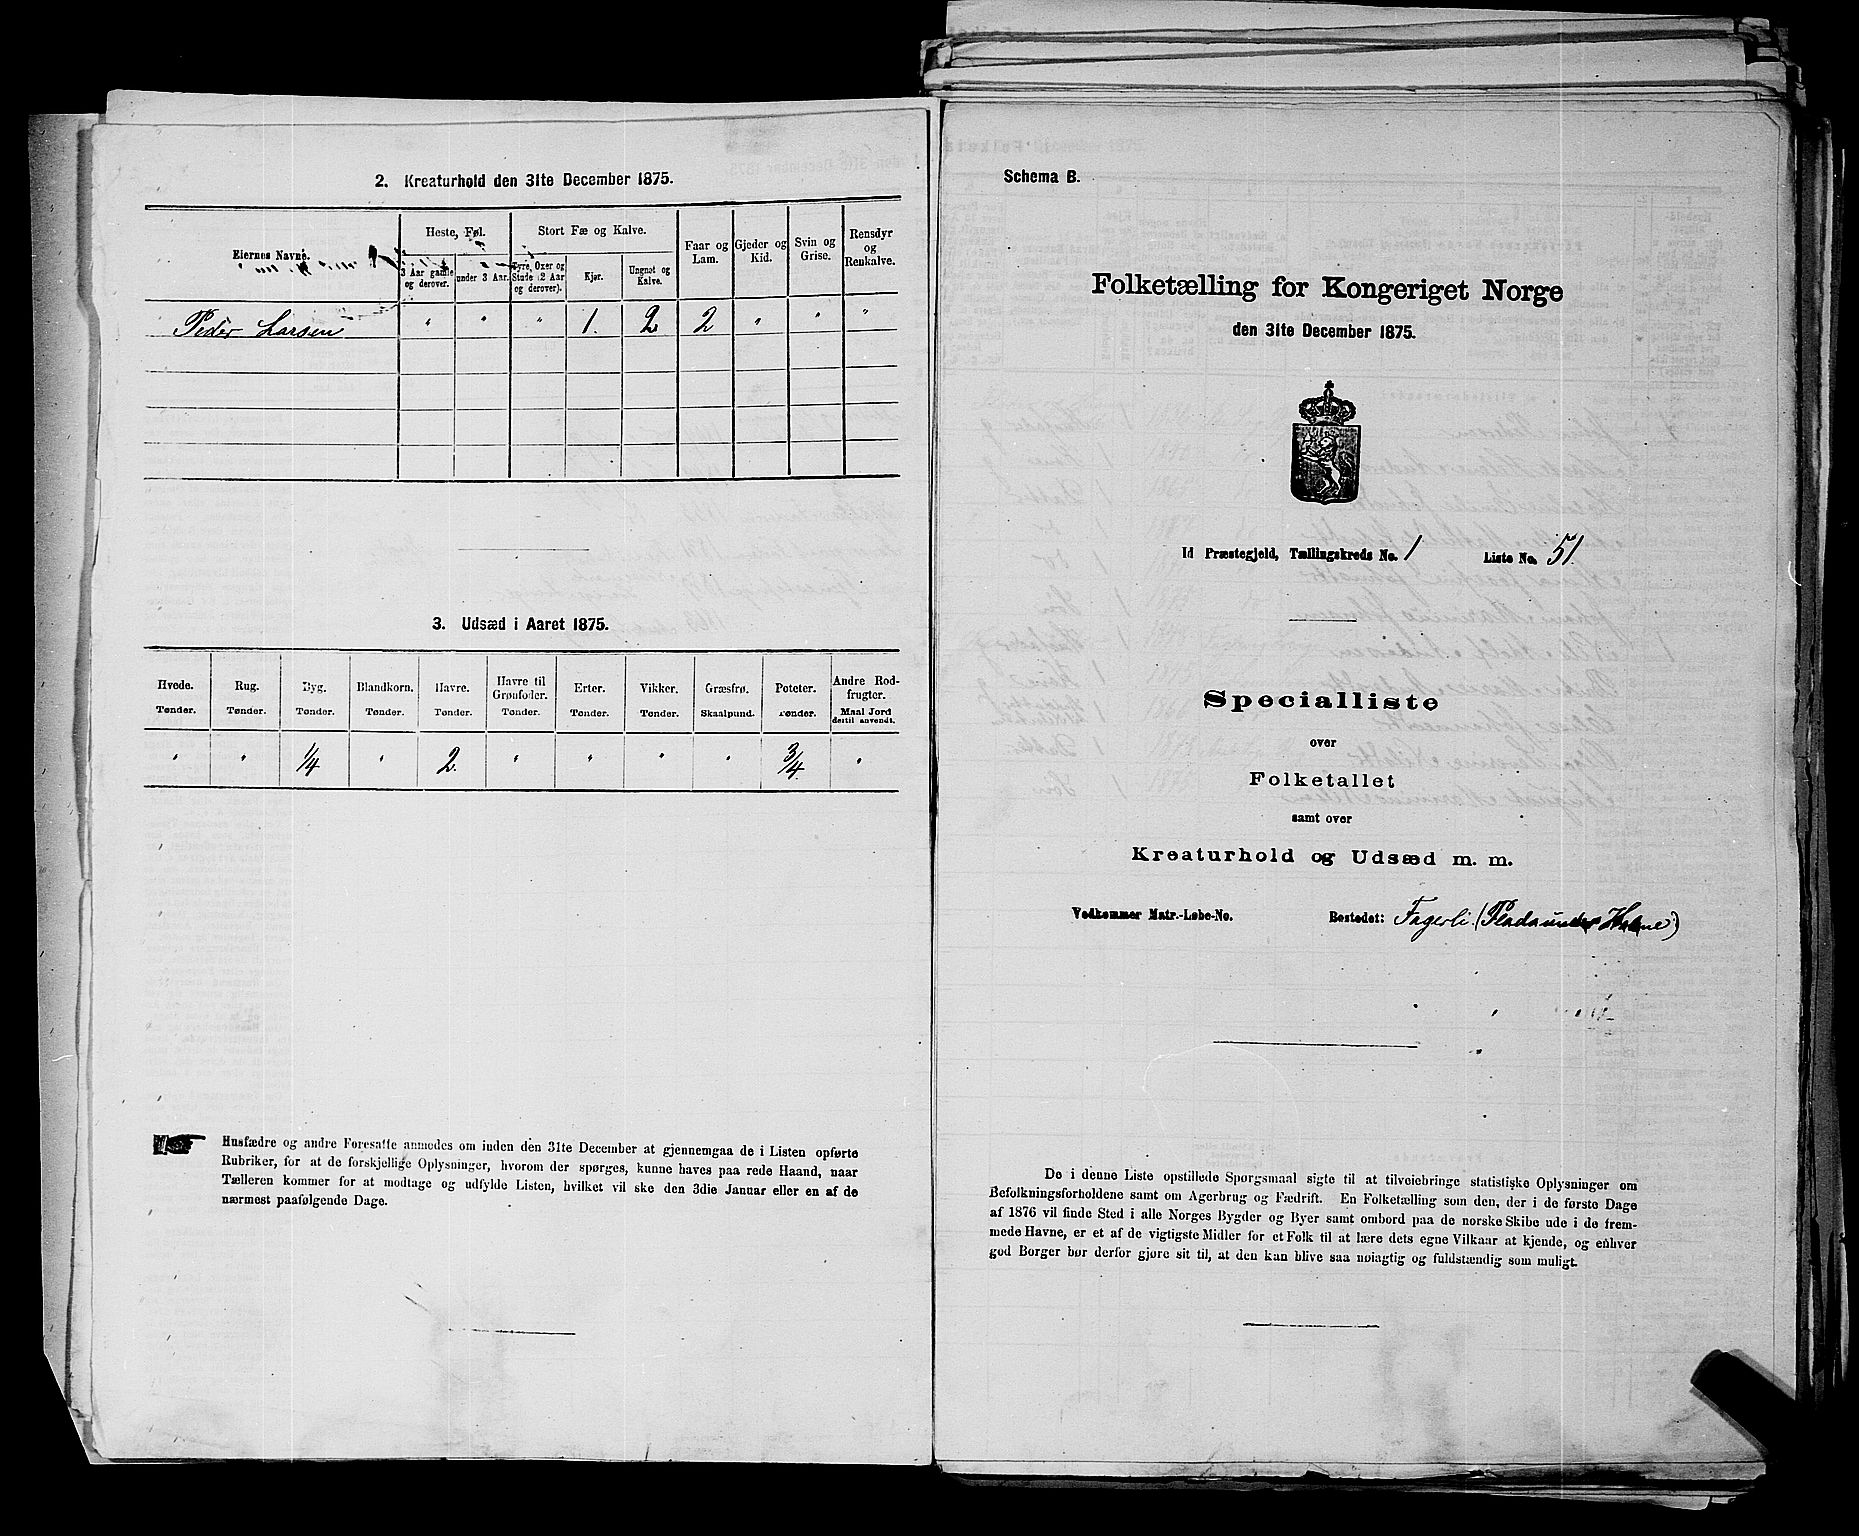 2. Kreaturhold den 31te December 1875.
Eiernes Navne.
Heste, Føl.
3 Aar gamle og derover.
under 3 Aar.
Stort Fæ og Kalve.
Tyre, Oxer og Stude (2 Aar og derover).
Kjør.
Ungnøt og Kalve.
Faar og Lam.
Gjeder og Kid.
Svin og Grise.
Rensdyr og Renkalve.
Peder Larsen " " " 1. 2 2 " " "
3. Udsæd i Aaret 1875.
Hvede. Rug. Byg. Blandkorn. Havre. Havre til Grønfoder. Erter. Vikker. Græsfrø. Poteter. Andre Rodfrugter.
Tønder. Tønder. Tønder. Tønder. Tønder. Tønder. Tønder. Tønder. Skaalpund. Tønder. Maal Jord dertil anvendt.
" " 1/4 " 2. " " " " 3/4 "
Husfædre og andre Foresatte anmodes om inden den 31te December at gjennemgaa de i Listen opførte
Rubriker, for at de forskjellige Oplysninger, hvorom der spørges, kunne haves paa rede Haand, naar
Tælleren kommer for at modtage og udfylde Listen, hvilket vil ske den 3die Januar eller en af de
nærmest paafølgende Dage.
Schema B.
Folketælling for Kongeriget Norge
den 31te December 1875.
Id Præstegjeld, Tællingskreds No. 1 Liste No. 51.
Specialliste
over
Folketallet
samt over
Kreaturhold og Udsæd m. m.
Vedkommer Matr.-Løbe-No. Bostedet: Fagerli. (Plads under
De i denne Liste opstillede Spørgsmaal sigte til at tilveiebringe statistiske Oplysninger om
Befolkningsforholdene samt om Agerbrug og Fædrift. En Folketælling som den, der i de første Dage
af 1876 vil finde Sted i alle Norges Bygder og Byer samt ombord paa de norske Skibe ude i de frem-
mede Havne, er et af de vigtigste Midler for et Folk til at lære dets egne Vilkaar at kjende, og enhver
god Borger bør derfor gjøre sit til, at den kan blive saa nøiagtig og fuldstændig som muligt.